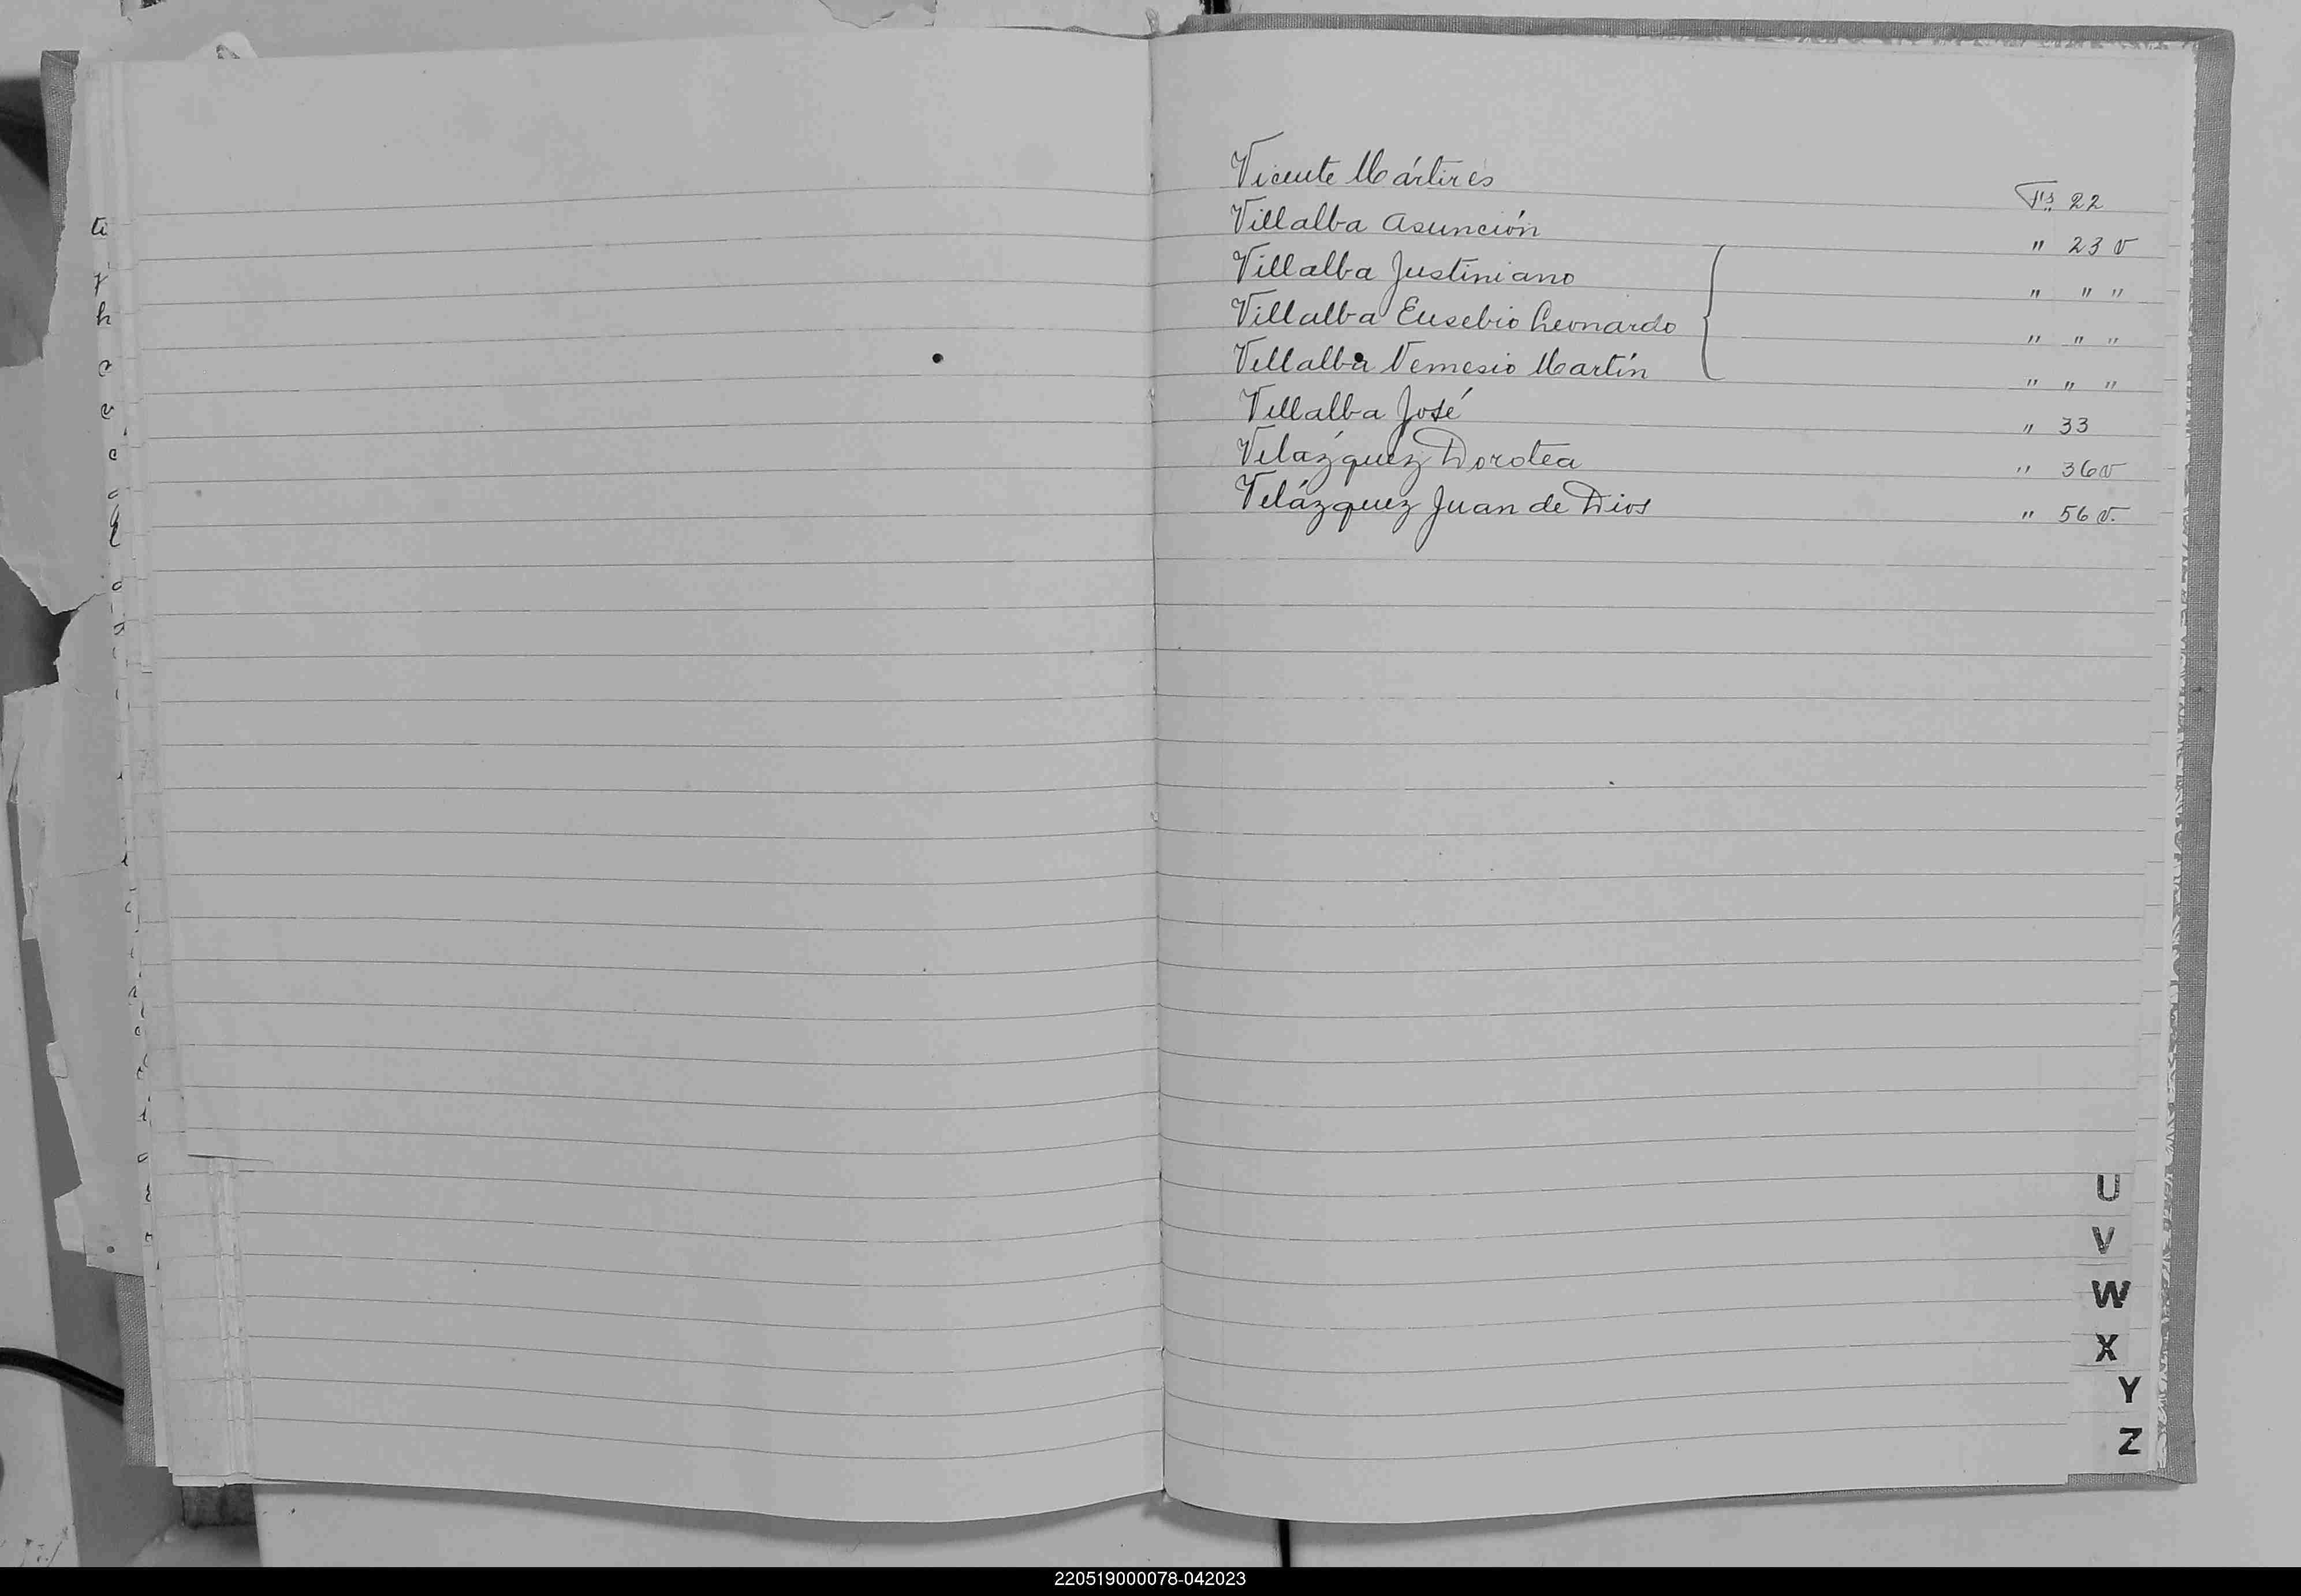 Vicente Mártires Fs. 22
Villalba Asunción " 23 v
Villalba Justiniano " " "
Villalba Eusebio Leonardo " " "
Villalba Nemesio Martín " " "
Villalba José " 33
Velázquez Dorotea " 36v
Velázquez Juan de Dios " 56 v.
U
V
W
X
Y
Z
220519000078-042023